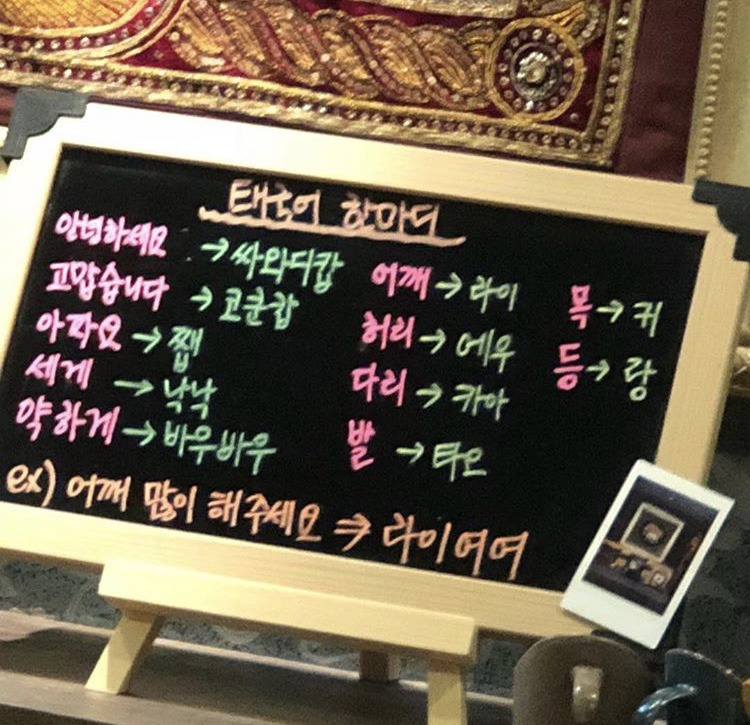 태국어 한마디
안녕하세요 → 싸와디캅
고맙습니다 → 코쿤캅
아파요 → 쨉
세게 → 낙낙
약하게 → 바우바우
어깨 → 라이
허리 → 에우
다리 → 카아
발 → 타오
목 → 커
등 → 랑
ex) 어깨 많이 해주세요 ⇒ 라이여여